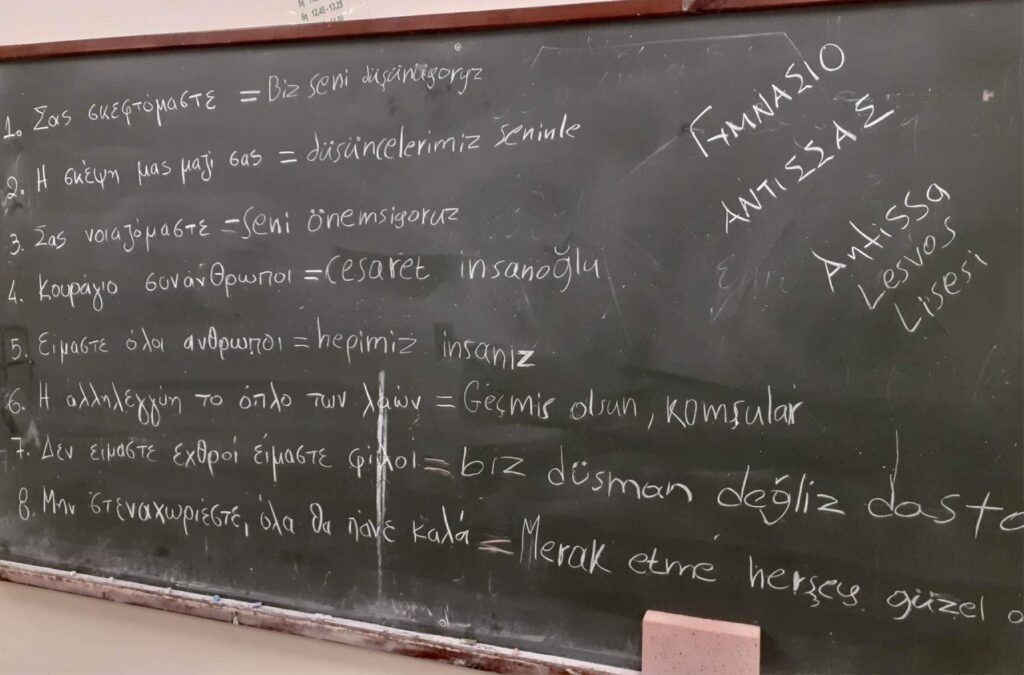 12.45 - 13.25
1. Σας σκεφτόμαστε = Biz seni düşünüyoryz
2. Η σκέψη μας μαζί σας = düşüncelerimiz seninle
3. Σας νοιαζόμαστε = Seni önemsiyoruz
4. Κουράγιο συνάνθρωποι = Cesaret insanoğlu
5. Ειμαστε όλοι άνθρωποι = hepimiz insaniz
6. Η αλληλεγγύη το όπλο των λαών = Geçmiş olsun, komşular
7. Δεν ειμαστε εχθροί είμαστε φίλοι = biz düsman değliz dosto
8. Μην στεναχωριέστε, όλα θα πάνε καλά = Merak etme herşey güzel o
ΓΥΜΝΑΣΙΟ
ΑΝΤΙΣΣΑΣ
Antissa
Lesvos
Lisesi